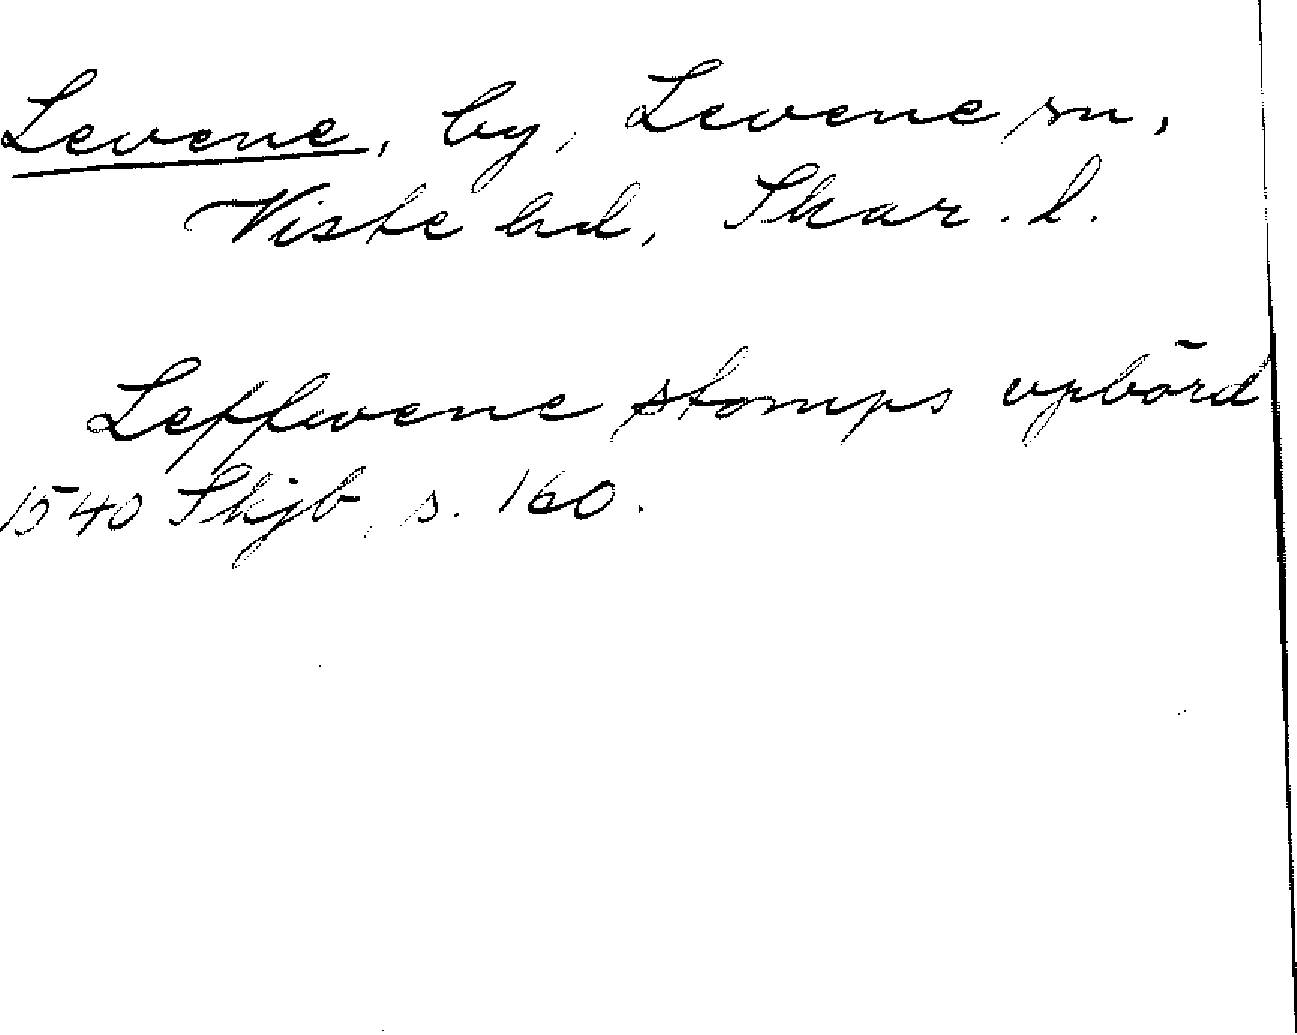 Levene, by, Levene sn,
Viste hd, Skar. l.
Leffwene stomps vpbörd
1540 Skjb, s. 160.